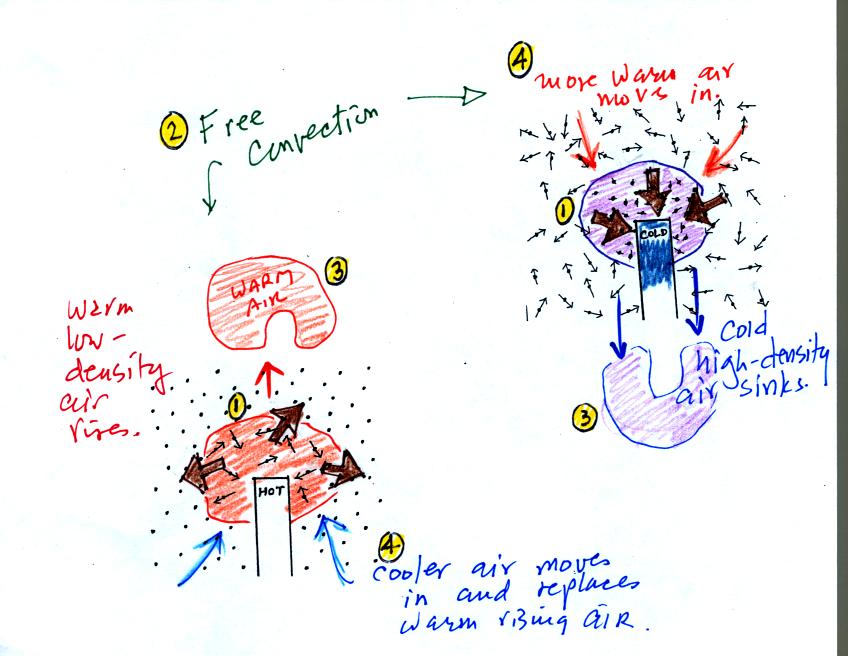 ④
more warm air
moves in.
② Free
Convection
①
COLD
③
WARM
AIR
warm
low-
density
air
rises.
Cold
high-density
air sinks.
③
①
HOT
④
cooler air moves
in and replaces
warm rising air.